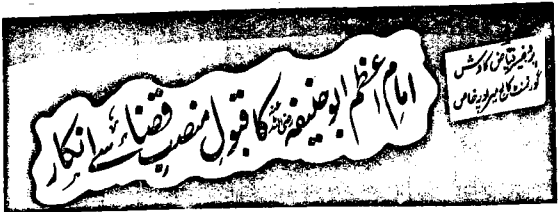 امام اعظم ابو حنیفہ رضی اللہ عنہ کا قبول منصب قضاء سے انکار
پروفیسر فیاض کاوش
گورنمنٹ کالج میرپور خاص